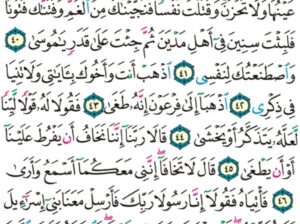 عَيْنُهَا وَلَا تَحْزَنَ وَقَتَلْتَ نَفْسًا فَنَجَّيْنَٰكَ مِنَ ٱلْغَمِّ وَفَتَنَّٰكَ فُتُونًا
فَلَبِثْتَ سِنِينَ فِىٓ أَهْلِ مَدْيَنَ ثُمَّ جِئْتَ عَلَىٰ قَدَرٍ يَٰمُوسَىٰ ٤٠
وَٱصْطَنَعْتُكَ لِنَفْسِى ٤١ ٱذْهَبْ أَنتَ وَأَخُوكَ بِـَٔايَٰتِى وَلَا تَنِيَا
فِى ذِكْرِى ٤٢ ٱذْهَبَآ إِلَىٰ فِرْعَوْنَ إِنَّهُۥ طَغَىٰ ٤٣ فَقُولَا لَهُۥ قَوْلًا لَّيِّنًا
لَّعَلَّهُۥ يَتَذَكَّرُ أَوْ يَخْشَىٰ ٤٤ قَالَا رَبَّنَآ إِنَّنَا نَخَافُ أَن يَفْرُطَ عَلَيْنَآ
أَوْ أَن يَطْغَىٰ ٤٥ قَالَ لَا تَخَافَآ إِنَّنِى مَعَكُمَآ أَسْمَعُ وَأَرَىٰ
٤٦ فَأْتِيَاهُ فَقُولَآ إِنَّا رَسُولَا رَبِّكَ فَأَرْسِلْ مَعَنَا بَنِىٓ إِسْرَٰٓءِيلَ